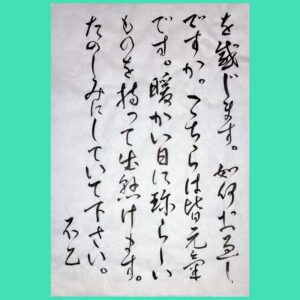 を感じます。如何お過し
ですか。こちらは皆元氣
です。暖かい日に珍らしい
ものを持って出懸けます。
たのしみにしていて下さい。
不乙